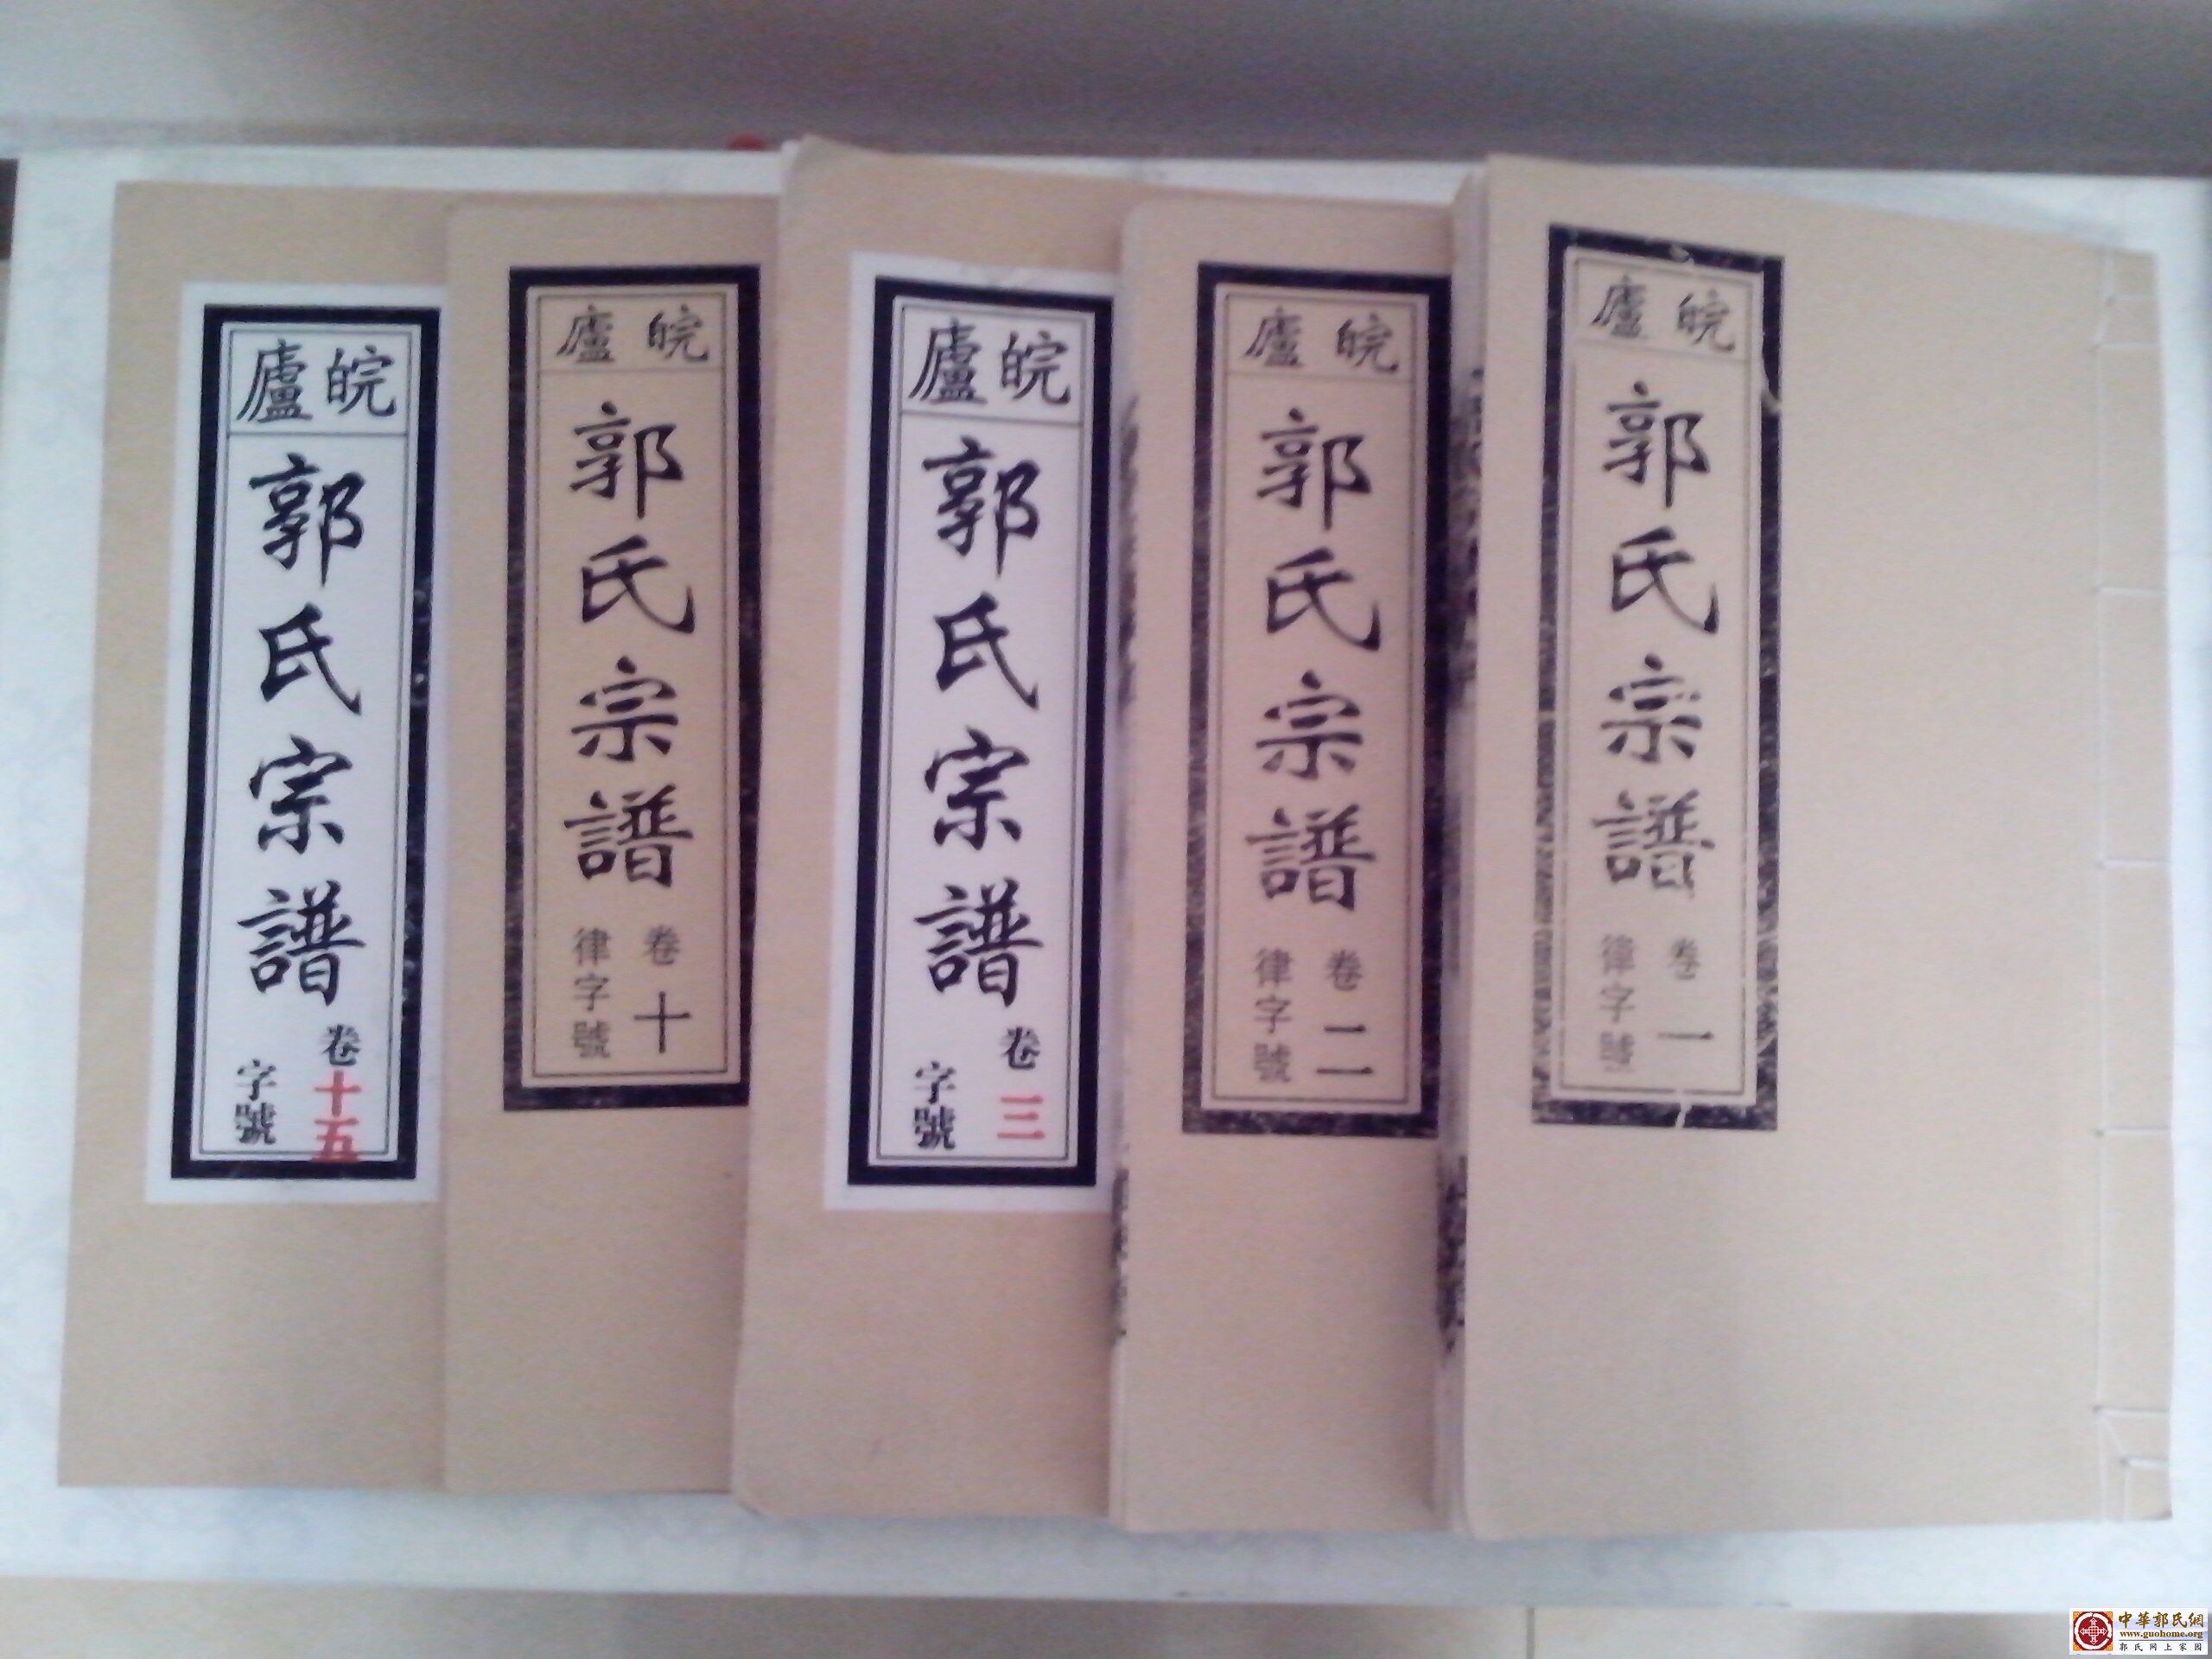 皖廬
郭氏宗譜
卷一
律字號
皖廬
郭氏宗譜
卷二
律字號
皖廬
郭氏宗譜
卷三
字號
皖廬
郭氏宗譜
卷十
律字號
皖廬
郭氏宗譜
卷十五
字號
中華郭氏網
www.guohome.org
郭氏网上家园